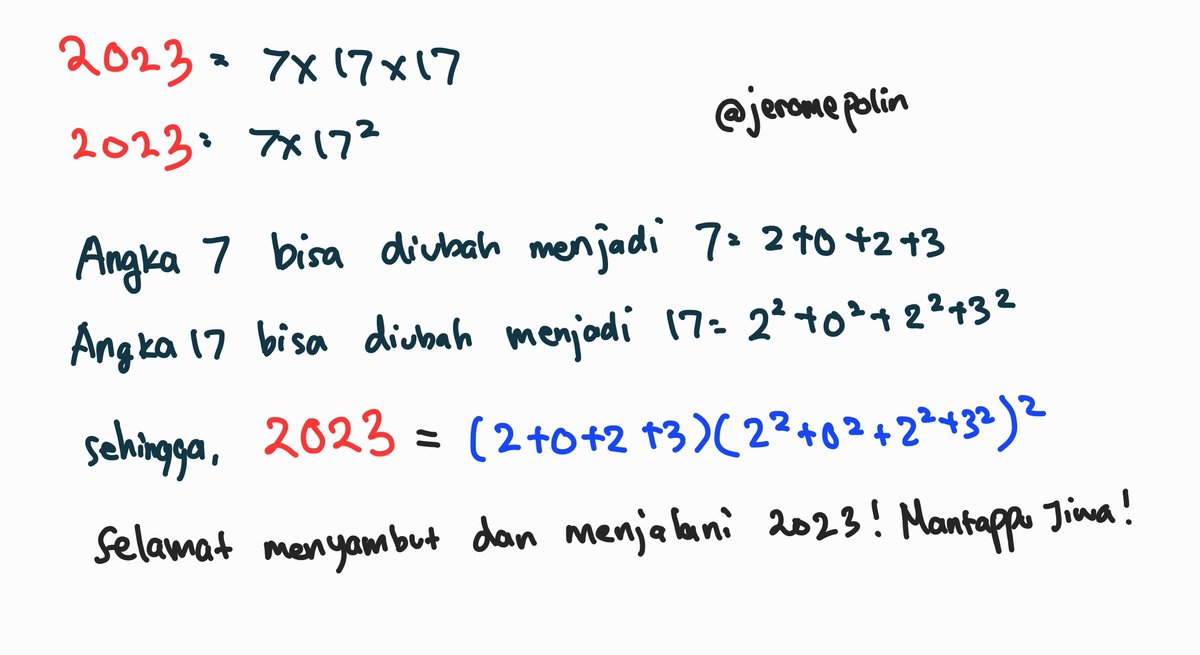 2023 = 7x17x17
@jeromepolin
2023 = 7x17²
Angka 7 bisa diubah menjadi 7 = 2+0+2+3
Angka 17 bisa diubah menjadi 17 = 2²+0²+2²+3²
sehingga, 2023 = (2+0+2+3)(2²+0²+2²+3²)²
Selamat menyambut dan menjalani 2023! Mantappu Jiwa!